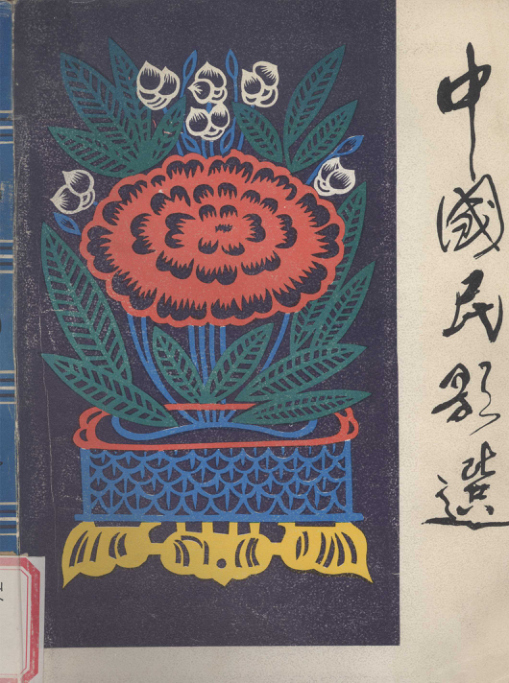 中國民歌選